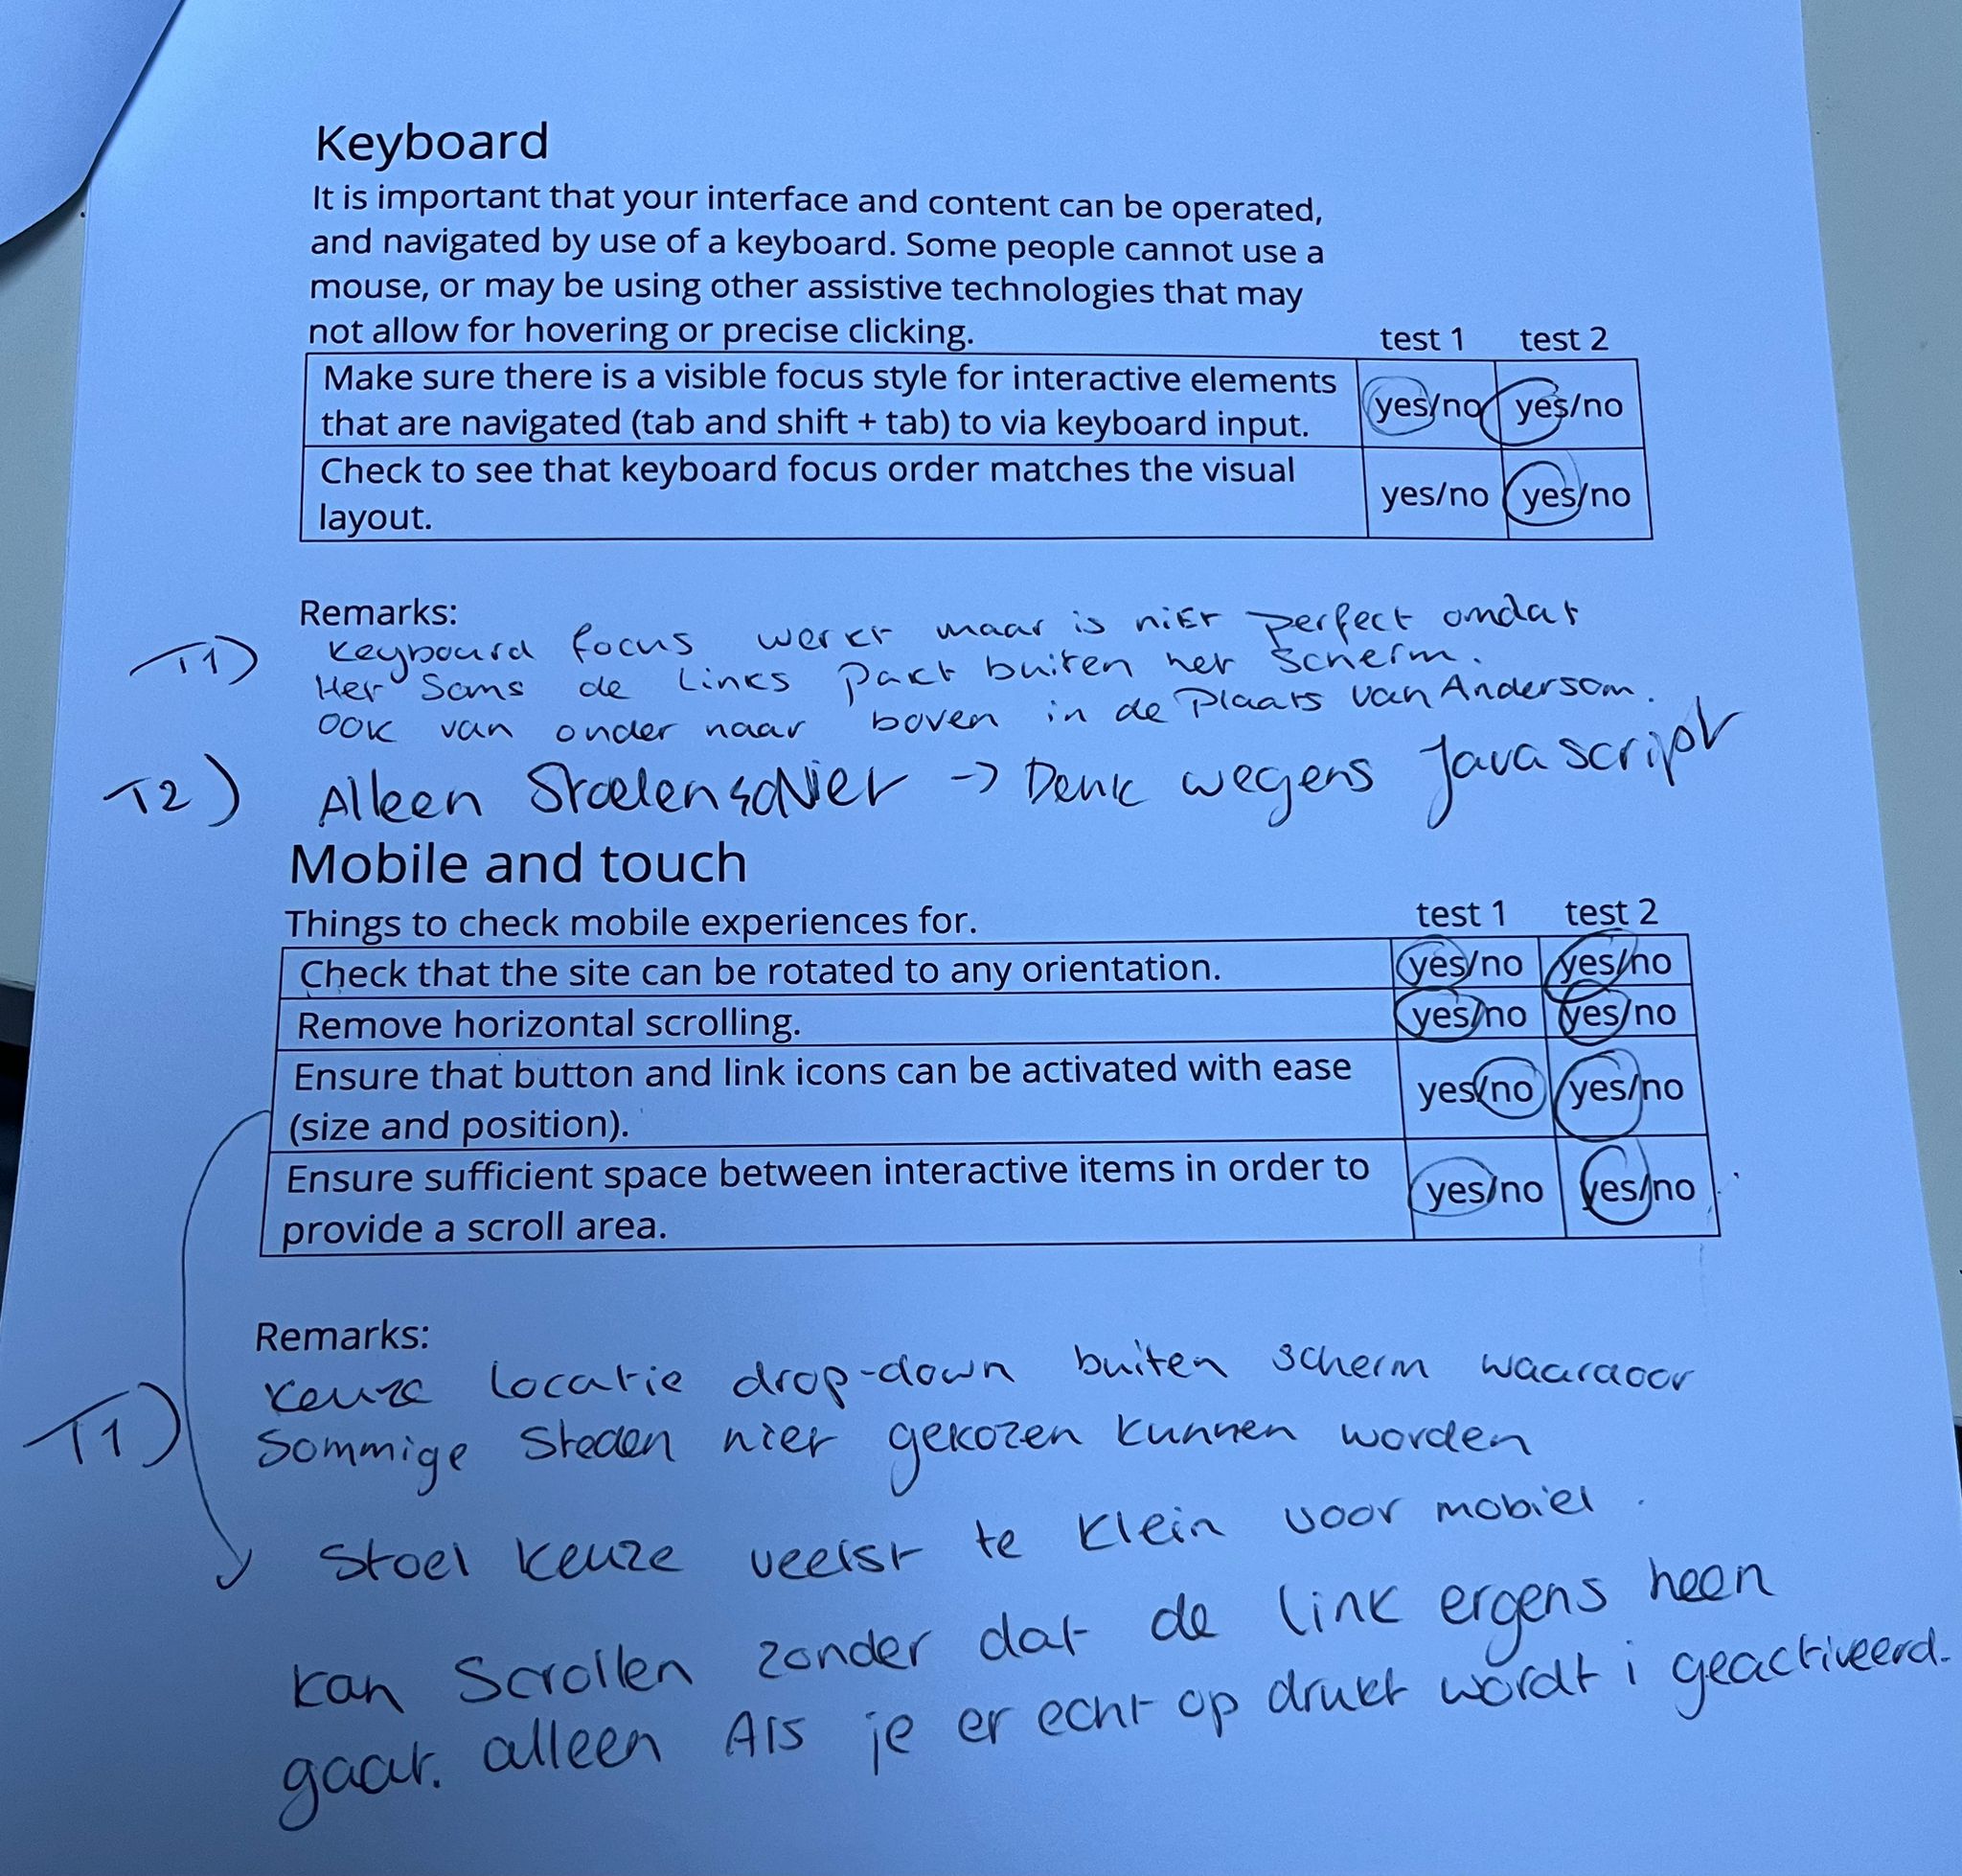 Keyboard
It is important that your interface and content can be operated,
and navigated by use of a keyboard. Some people cannot use a
mouse, or may be using other assistive technologies that may
not allow for hovering or precise clicking.
test 1 test 2
Make sure there is a visible focus style for interactive elements
that are navigated (tab and shift + tab) to via keyboard input.
yes/no yes/no
Check to see that keyboard focus order matches the visual
layout.
yes/no yes/no
Remarks:
T1) Keyboard focus werkt maar is niet perfect omdat
Het soms de Links Pakt buiten het scherm.
OOK van onder naar boven in de Plaats van Andersom.
T2) Alleen niet -> Denk wegens Javascript
Mobile and touch
Things to check mobile experiences for.
test 1 test 2
Check that the site can be rotated to any orientation.
yes/no yes/no
Remove horizontal scrolling.
yes/no yes/no
Ensure that button and link icons can be activated with ease
(size and position).
yes/no yes/no
Ensure sufficient space between interactive items in order to
provide a scroll area.
yes/no yes/no
Remarks:
T1) Keuze Locatie drop-down buiten scherm waardoor
Sommige steden niet gekozen kunnen worden
Stoel keuze veelst te klein voor mobiel.
kan Scrollen zonder dat de link ergens heen
gaat. alleen Als je er echt op drukt wordt i geactiveerd.